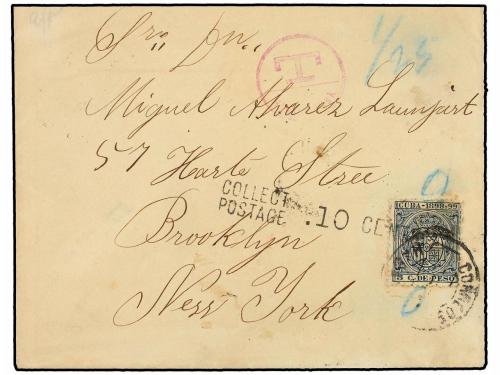 Sr. Dn.
T
1/25
Miguel Alvarez Launjart
57 Harte Stree
COLLECT
POSTAGE .10 CE
Brooklyn
New York
0
CUBA-1898-99
5 C. DE PESO
CORRE
0